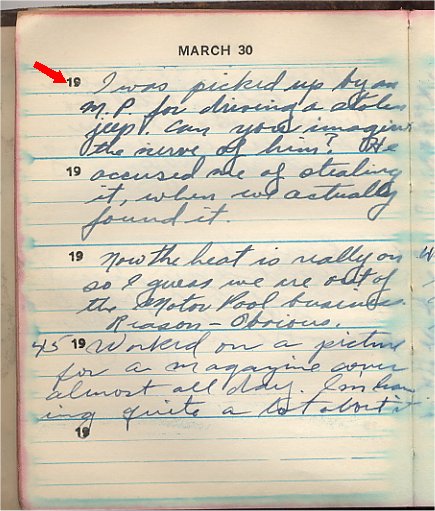 MARCH 30
19 I was picked up by an
M.P. for driving a stolen
jeep. Can you imagine
the nerve of him? He
19 accused me of stealing
it, when we actually
found it.
19 Now the heat is really on
so I guess we are out of
the Motor Pool business.
Reason - Obvious.
45 19 Worked on a picture
for a magazine cover
almost all day. I'm
ing quite a bit about it
19